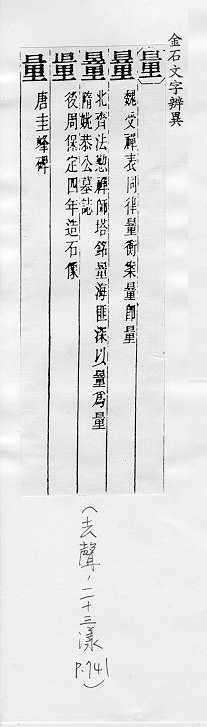 金石文字辨異
量
量 魏受禪表同律量衡案量即量
量 北齊法懃禪師塔銘量海匪深以量爲量
隋姚恭公墓誌
量 後周保定四年造石像
量 唐圭峰碑
(去聲，二十三漾 P.741)